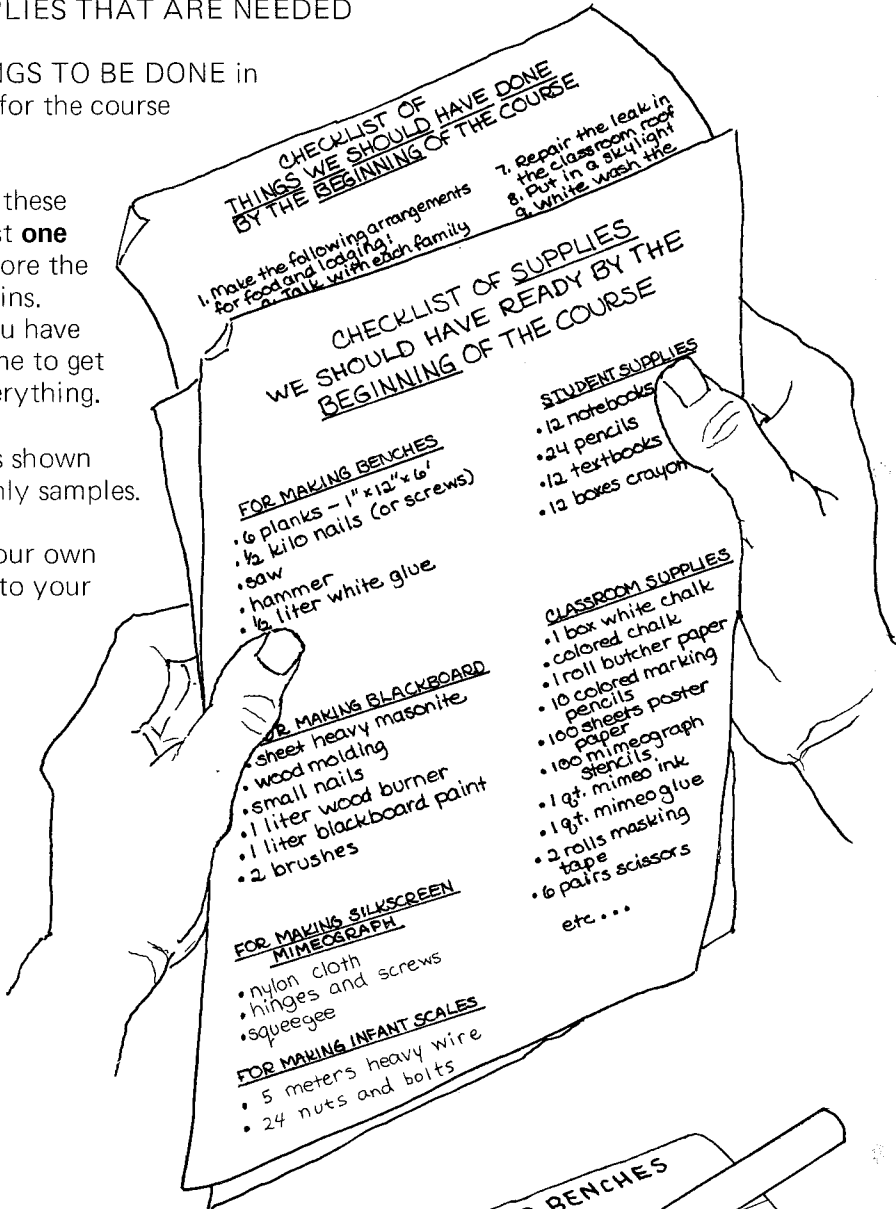 PLIES THAT ARE NEEDED
NGS TO BE DONE in
for the course
these
st one
ore the
ins.
u have
ne to get
erything.
s shown
nly samples.
our own
to your
CHECKLIST OF
THINGS WE SHOULD HAVE DONE
BY THE BEGINNING OF THE COURSE
1. Make the following arrangements
for food and lodging:
a. Talk with each family
7. Repair the leak in
the classroom roof
8. Put in a skylight
9. White wash the
CHECKLIST OF SUPPLIES
WE SHOULD HAVE READY BY THE
BEGINNING OF THE COURSE
FOR MAKING BENCHES
• 6 planks – 1" x 12" x 6'
• ½ kilo nails (or screws)
• saw
• hammer
• ½ liter white glue
OR MAKING BLACKBOARD
• sheet heavy masonite
• wood molding
• small nails
• 1 liter wood burner
• 1 liter blackboard paint
• 2 brushes
FOR MAKING SILKSCREEN
MIMEOGRAPH
• nylon cloth
• hinges and screws
• squeegee
FOR MAKING INFANT SCALES
• 5 meters heavy wire
• 24 nuts and bolts
STUDENT SUPPLIES
• 12 notebooks
• 24 pencils
• 12 textbooks
• 12 boxes crayon
CLASSROOM SUPPLIES
• 1 box white chalk
• colored chalk
• 1 roll butcher paper
• 10 colored marking
pencils
• 100 sheets poster
paper
• 100 mimeograph
stencils
• 1 qt. mimeo ink
• 1 qt. mimeo glue
• 2 rolls masking
tape
• 6 pairs scissors
etc...
BENCHES